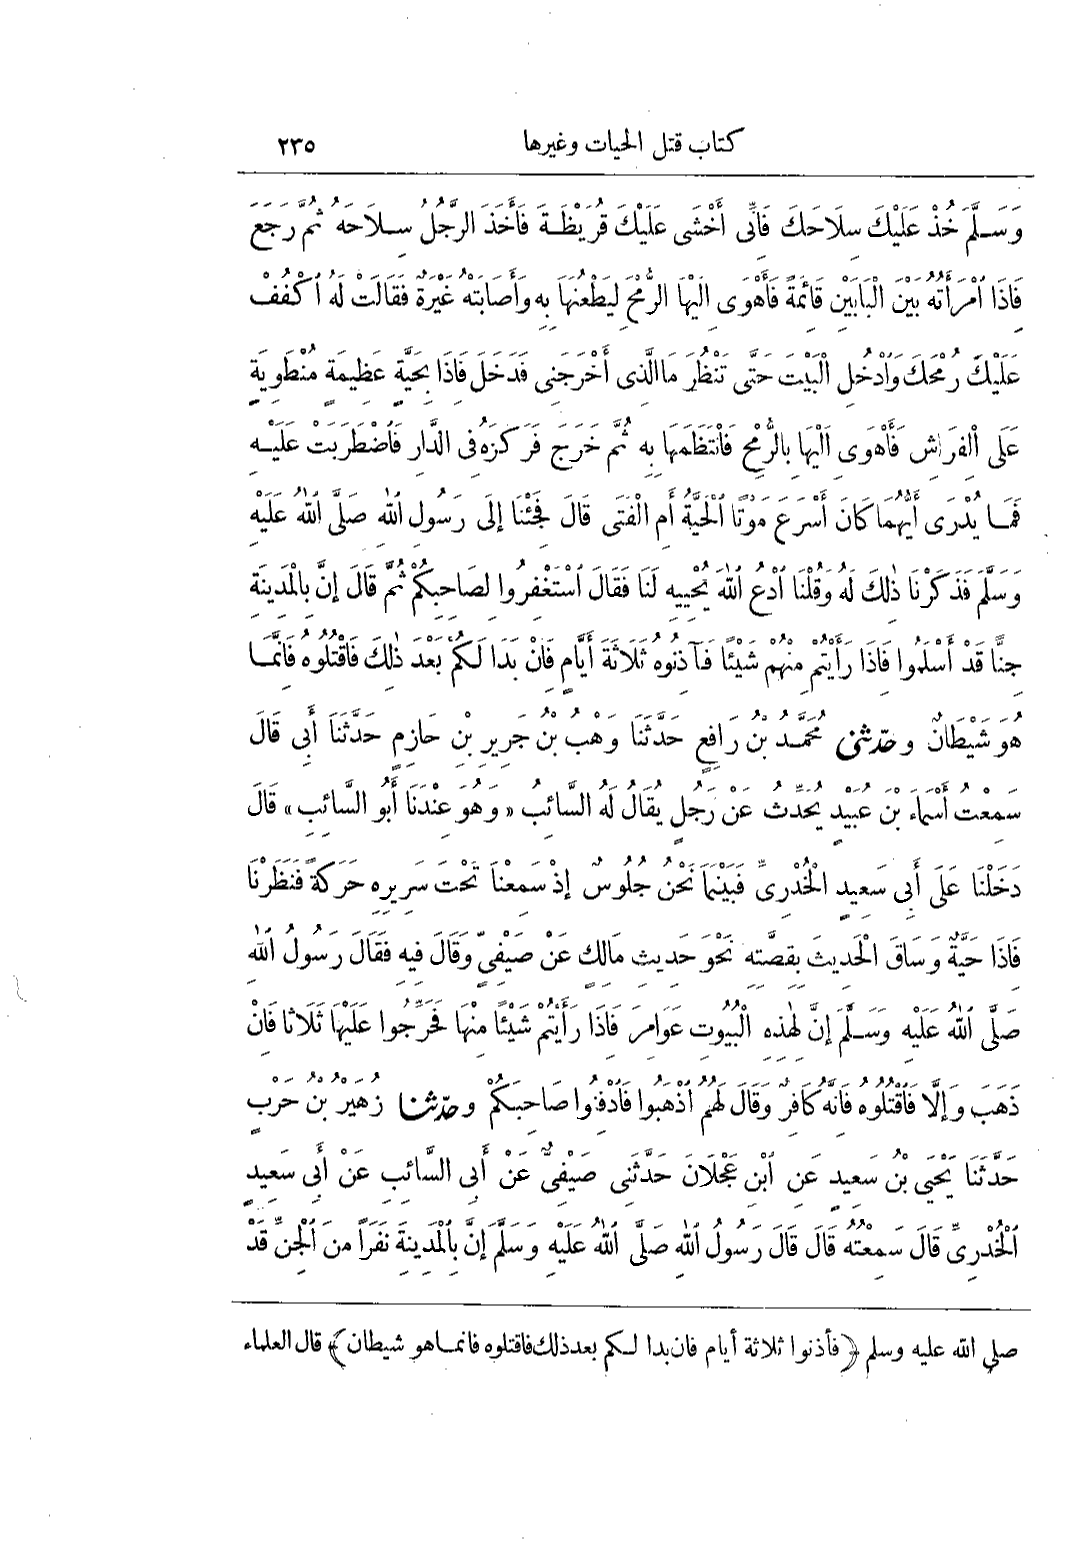 كتاب قتل الحيات وغيرها ٢٣٥
وَسَلَّمَ خُذْ عَلَيْكَ سِلَاحَكَ فَإِنِّى أَخْشَى عَلَيْكَ قُرَيْظَةَ فَأَخَذَ الرَّجُلُ سِلَاحَهُ ثُمَّ رَجَعَ
فَإِذَا ٱمْرَأَتُهُ بَيْنَ الْبَابَيْنِ قَائِمَةً فَأَهْوَى إِلَيْهَا الرُّمْحَ لِيَطْعُنَهَا بِهِ وَأَصَابَتْهُ غَيْرَةٌ فَقَالَتْ لَهُ ٱكْفُفْ
عَلَيْكَ رُمْحَكَ وَٱدْخُلِ الْبَيْتَ حَتَّى تَنْظُرَ مَا الَّذِى أَخْرَجَنِى فَدَخَلَ فَإِذَا بِحَيَّةٍ عَظِيمَةٍ مُنْطَوِيَةٍ
عَلَى الْفِرَاشِ فَأَهْوَى إِلَيْهَا بِالرُّمْحِ فَانْتَظَمَهَا بِهِ ثُمَّ خَرَجَ فَرَكَزَهُ فِى الدَّارِ فَٱضْطَرَبَتْ عَلَيْهِ
فَمَا يُدْرَى أَيُّهُمَا كَانَ أَسْرَعَ مَوْتًا ٱلْحَيَّةُ أَمِ الْفَتَى قَالَ فَجِئْنَا إِلَى رَسُولِ ٱللهِ صَلَّى ٱللهُ عَلَيْهِ
وَسَلَّمَ فَذَكَرْنَا ذٰلِكَ لَهُ وَقُلْنَا ٱدْعُ ٱللهَ يُحْيِيهِ لَنَا فَقَالَ ٱسْتَغْفِرُوا لِصَاحِبِكُمْ ثُمَّ قَالَ إِنَّ بِالْمَدِينَةِ
جِنًّا قَدْ أَسْلَمُوا فَإِذَا رَأَيْتُمْ مِنْهُمْ شَيْئًا فَآذِنُوهُ ثَلَاثَةَ أَيَّامٍ فَإِنْ بَدَا لَكُمْ بَعْدَ ذٰلِكَ فَاقْتُلُوهُ فَإِنَّمَا
هُوَ شَيْطَانٌ وحَدَّثَنِى مُحَمَّدُ بْنُ رَافِعٍ حَدَّثَنَا وَهْبُ بْنُ جَرِيرِ بْنِ حَازِمٍ حَدَّثَنَا أَبِى قَالَ
سَمِعْتُ أَسْمَاءَ بْنَ عُبَيْدٍ يُحَدِّثُ عَنْ رَجُلٍ يُقَالُ لَهُ السَّائِبُ «وَهُوَ عِنْدَنَا أَبُو السَّائِبِ» قَالَ
دَخَلْنَا عَلَى أَبِى سَعِيدٍ الْخُدْرِىِّ فَبَيْنَمَا نَحْنُ جُلُوسٌ إِذْ سَمِعْنَا تَحْتَ سَرِيرِهِ حَرَكَةً فَنَظَرْنَا
فَإِذَا حَيَّةٌ وَسَاقَ الْحَدِيثَ بِقِصَّتِهِ نَحْوَ حَدِيثِ مَالِكٍ عَنْ صَيْفِيٍّ وَقَالَ فِيهِ فَقَالَ رَسُولُ ٱللهِ
صَلَّى ٱللهُ عَلَيْهِ وَسَلَّمَ إِنَّ لِهٰذِهِ الْبُيُوتِ عَوَامِرَ فَإِذَا رَأَيْتُمْ شَيْئًا مِنْهَا فَحَرِّجُوا عَلَيْهَا ثَلَاثًا فَإِنْ
ذَهَبَ وَإِلَّا فَٱقْتُلُوهُ فَإِنَّهُ كَافِرٌ وَقَالَ لَهُمُ ٱذْهَبُوا فَٱدْفِنُوا صَاحِبَكُمْ وحَدَّثَنَا زُهَيْرُ بْنُ حَرْبٍ
حَدَّثَنَا يَحْيَى بْنُ سَعِيدٍ عَنِ ٱبْنِ عَجْلَانَ حَدَّثَنِى صَيْفِىٌّ عَنْ أَبِى السَّائِبِ عَنْ أَبِى سَعِيدٍ
ٱلْخُدْرِىِّ قَالَ سَمِعْتُهُ قَالَ قَالَ رَسُولُ ٱللهِ صَلَّى ٱللهُ عَلَيْهِ وَسَلَّمَ إِنَّ بِٱلْمَدِينَةِ نَفَرًا مِنَ ٱلْجِنِّ قَدْ
صلى الله عليه وسلم ﴿فأذنوا ثلاثة أيام فان بدا لكم بعد ذلك فاقتلوه فانما هو شيطان﴾ قال العلماء